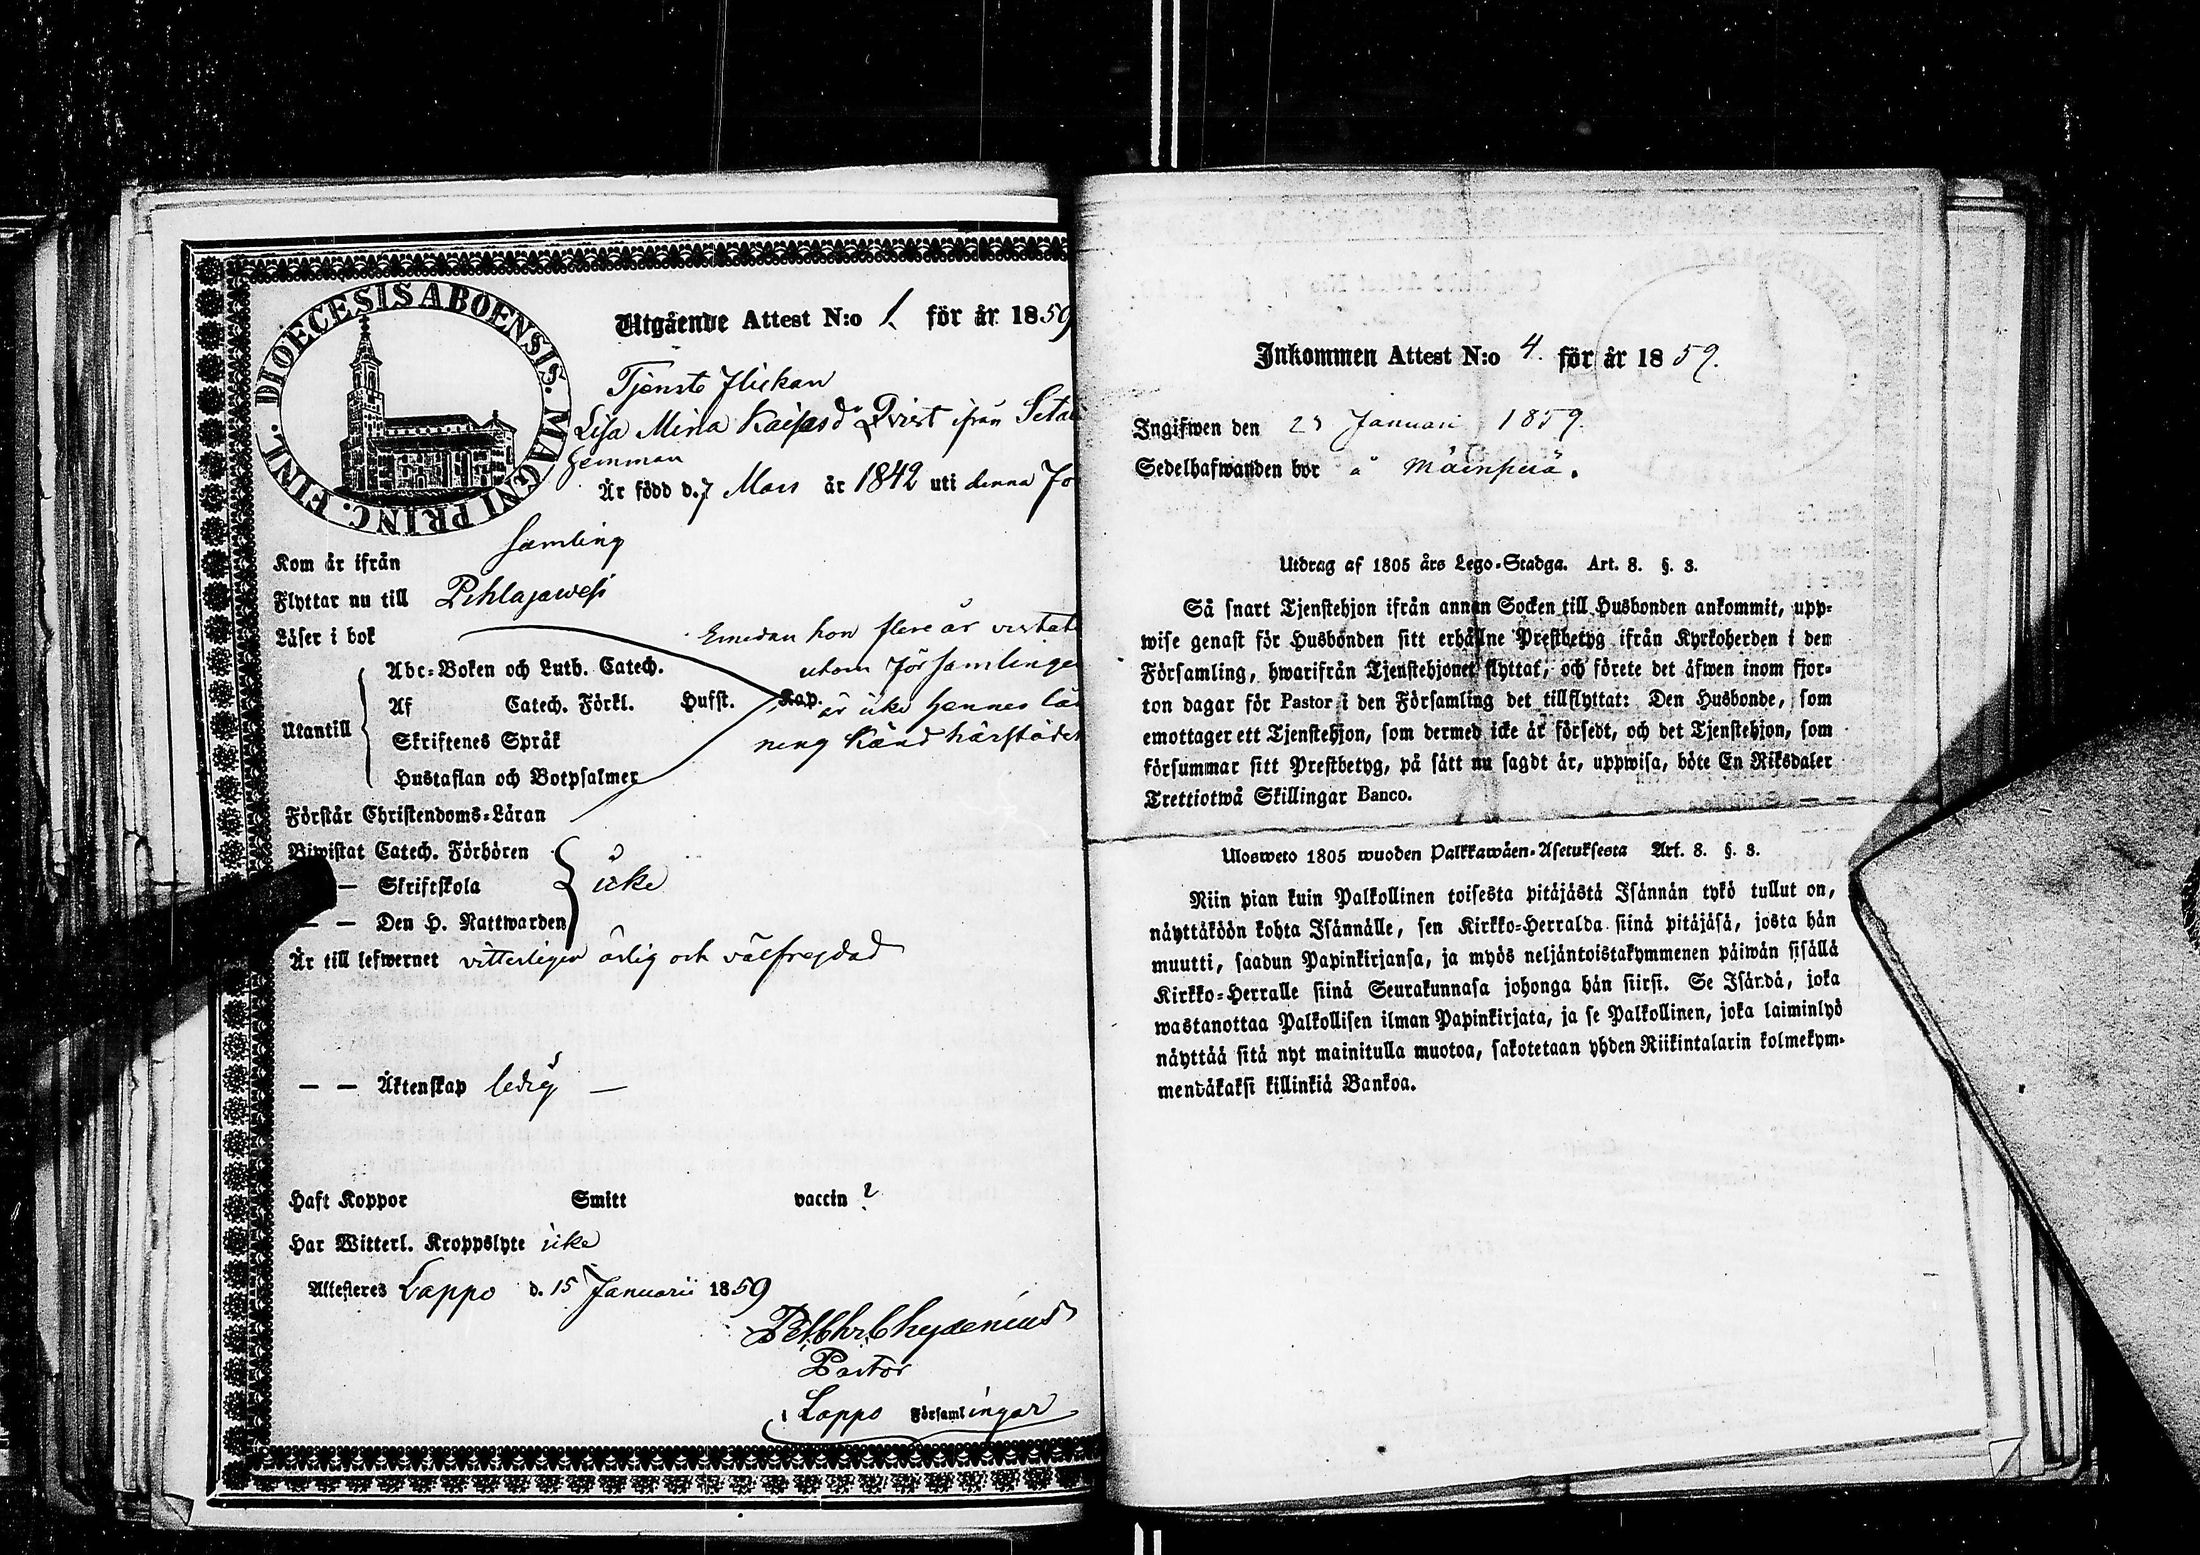 DIOECESIS ABOENSIS. MAGNI PRINC. FINL.
Utgående Attest N:o 1. för år 1859
Tjenste flickan
Lisa Mina Kaisasd:r Qvist ifrån
hemman
Är född d. 7 Mars år 1842 uti denna För
samling
Kom år ifrån
Flyttar nu till Pihlajawesi
Läser i bok
Emedan hon flere år vistats
Abc-Boken och Luth. Catech.
utom Församlingen
Af Catech. Förkl. Husst. Kap.
är icke hennes läs
Utantill
Skriftenes Språk
ning känd härstädes
Hustaflan och Botpsalmer
Förstår Christendoms-Läran
Biwistat Catech. Förhören
— Skriftskola icke
— — Den H. Nattwarden
Är till lefwernet vitterligen ärlig och välfrejdad
— — Äktenskap ledig —
Haft Koppor Smitt vaccin ?
Har Witterl. Kroppslyte icke
Attesteres Lappo d. 15 Januarii 1859
Chydenius
Pastor
i Lappo Församlingar
Inkommen Attest N:o 4. för år 1859.
Ingifwen den Januari 1859.
Sedelhafwanden bor å Mäenpää.
Utdrag af 1805 års Lego-Stadga. Art. 8. §. 3.
Så snart Tjenstehjon ifrån annan Socken till Husbonden ankommit, upp-
wise genast för Husbonden sitt erhållne Prestbetyg ifrån Kyrkoherden i den
Församling, hwarifrån Tjenstehjonet flyttat, och förete det äfwen inom fjor-
ton dagar för Pastor i den Församling det tillflyttat: Den Husbonde, som
emottager ett Tjenstehjon, som dermed icke är försedt, och det Tjenstehjon, som
försummar sitt Prestbetyg, på sätt nu sagdt är, uppwisa, böte En Riksdaler
Trettiotwå Skillingar Banco.
Uloswето 1805 wuoden Palkkawäen-Asetuksesta Art. 8. §. 3.
Niin pian kuin Palkollinen toisesta pitäjästä Isännän tykö tullut on,
näyttäköön kohta Isännälle, sen Kirkko-Herralda siinä pitäjäsä, josta hän
muutti, saadun Papinkirjansa, ja myös neljäntoistakymmenen päiwän sisällä
Kirkko-Herralle siinä Seurakunnasa johonga hän siirsi. Se Isändä, joka
wastanottaa Palkollisen ilman Papinkirjata, ja se Palkollinen, joka laiminlyö
näyttää sitä nyt mainitulla muotoa, sakotetaan yhden Riikintalarin kolmekym-
mendäkaksi killinkiä Bankoa.